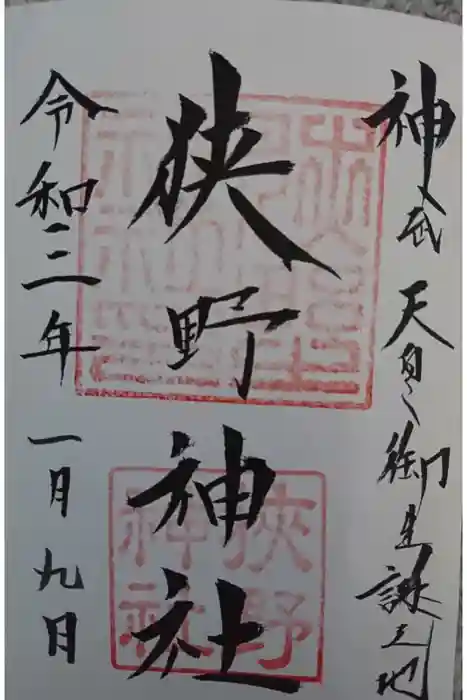 神武天皇御生誕之地
狭野神社
令和三年一月九日
狭野
神社